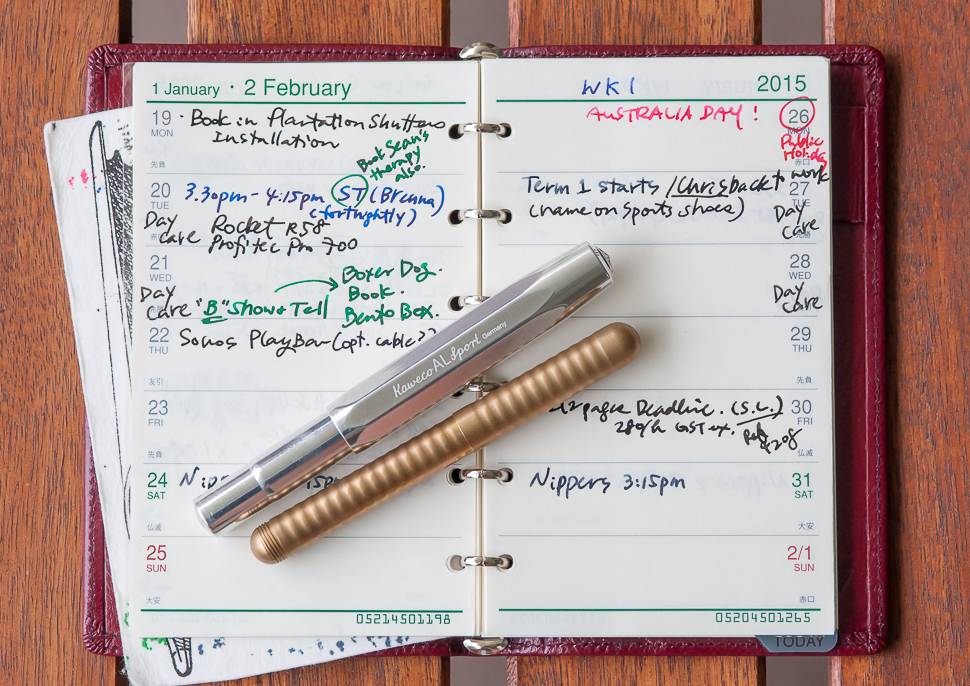 1 January · 2 February
19
MON
· Book in Plantation Shutters
Installation
Book Sean's
therapy
also.
先負
20
TUE
3.30pm - 4:15pm ST (Brenna)
(fortnightly)
Day
care
Rocket R58
Profitec Pro 700
21
WED
Day
care
"B" Show & Tell
Boxer Dog.
Book.
Bento Box.
22
THU
Sonos PlayBar (opt. cable?)
友引
23
FRI
先負
24
SAT
Nip
15pm
仏滅
25
SUN
大安
05214501198
WK 1
2015
AUSTRALIA DAY !
26
MON
Public
Holiday
Term 1 starts / Chris back to work
(name on sports shoes)
27
TUE
Day
care
28
WED
Day
care
29
THU
先負
12 pages Deadline. (S.L.)
280/h GST ex.
30
FRI
仏滅
Nippers 3:15pm
31
SAT
大安
2/1
SUN
赤口
05204501265
TODAY
Kaweco AL Sport Germany